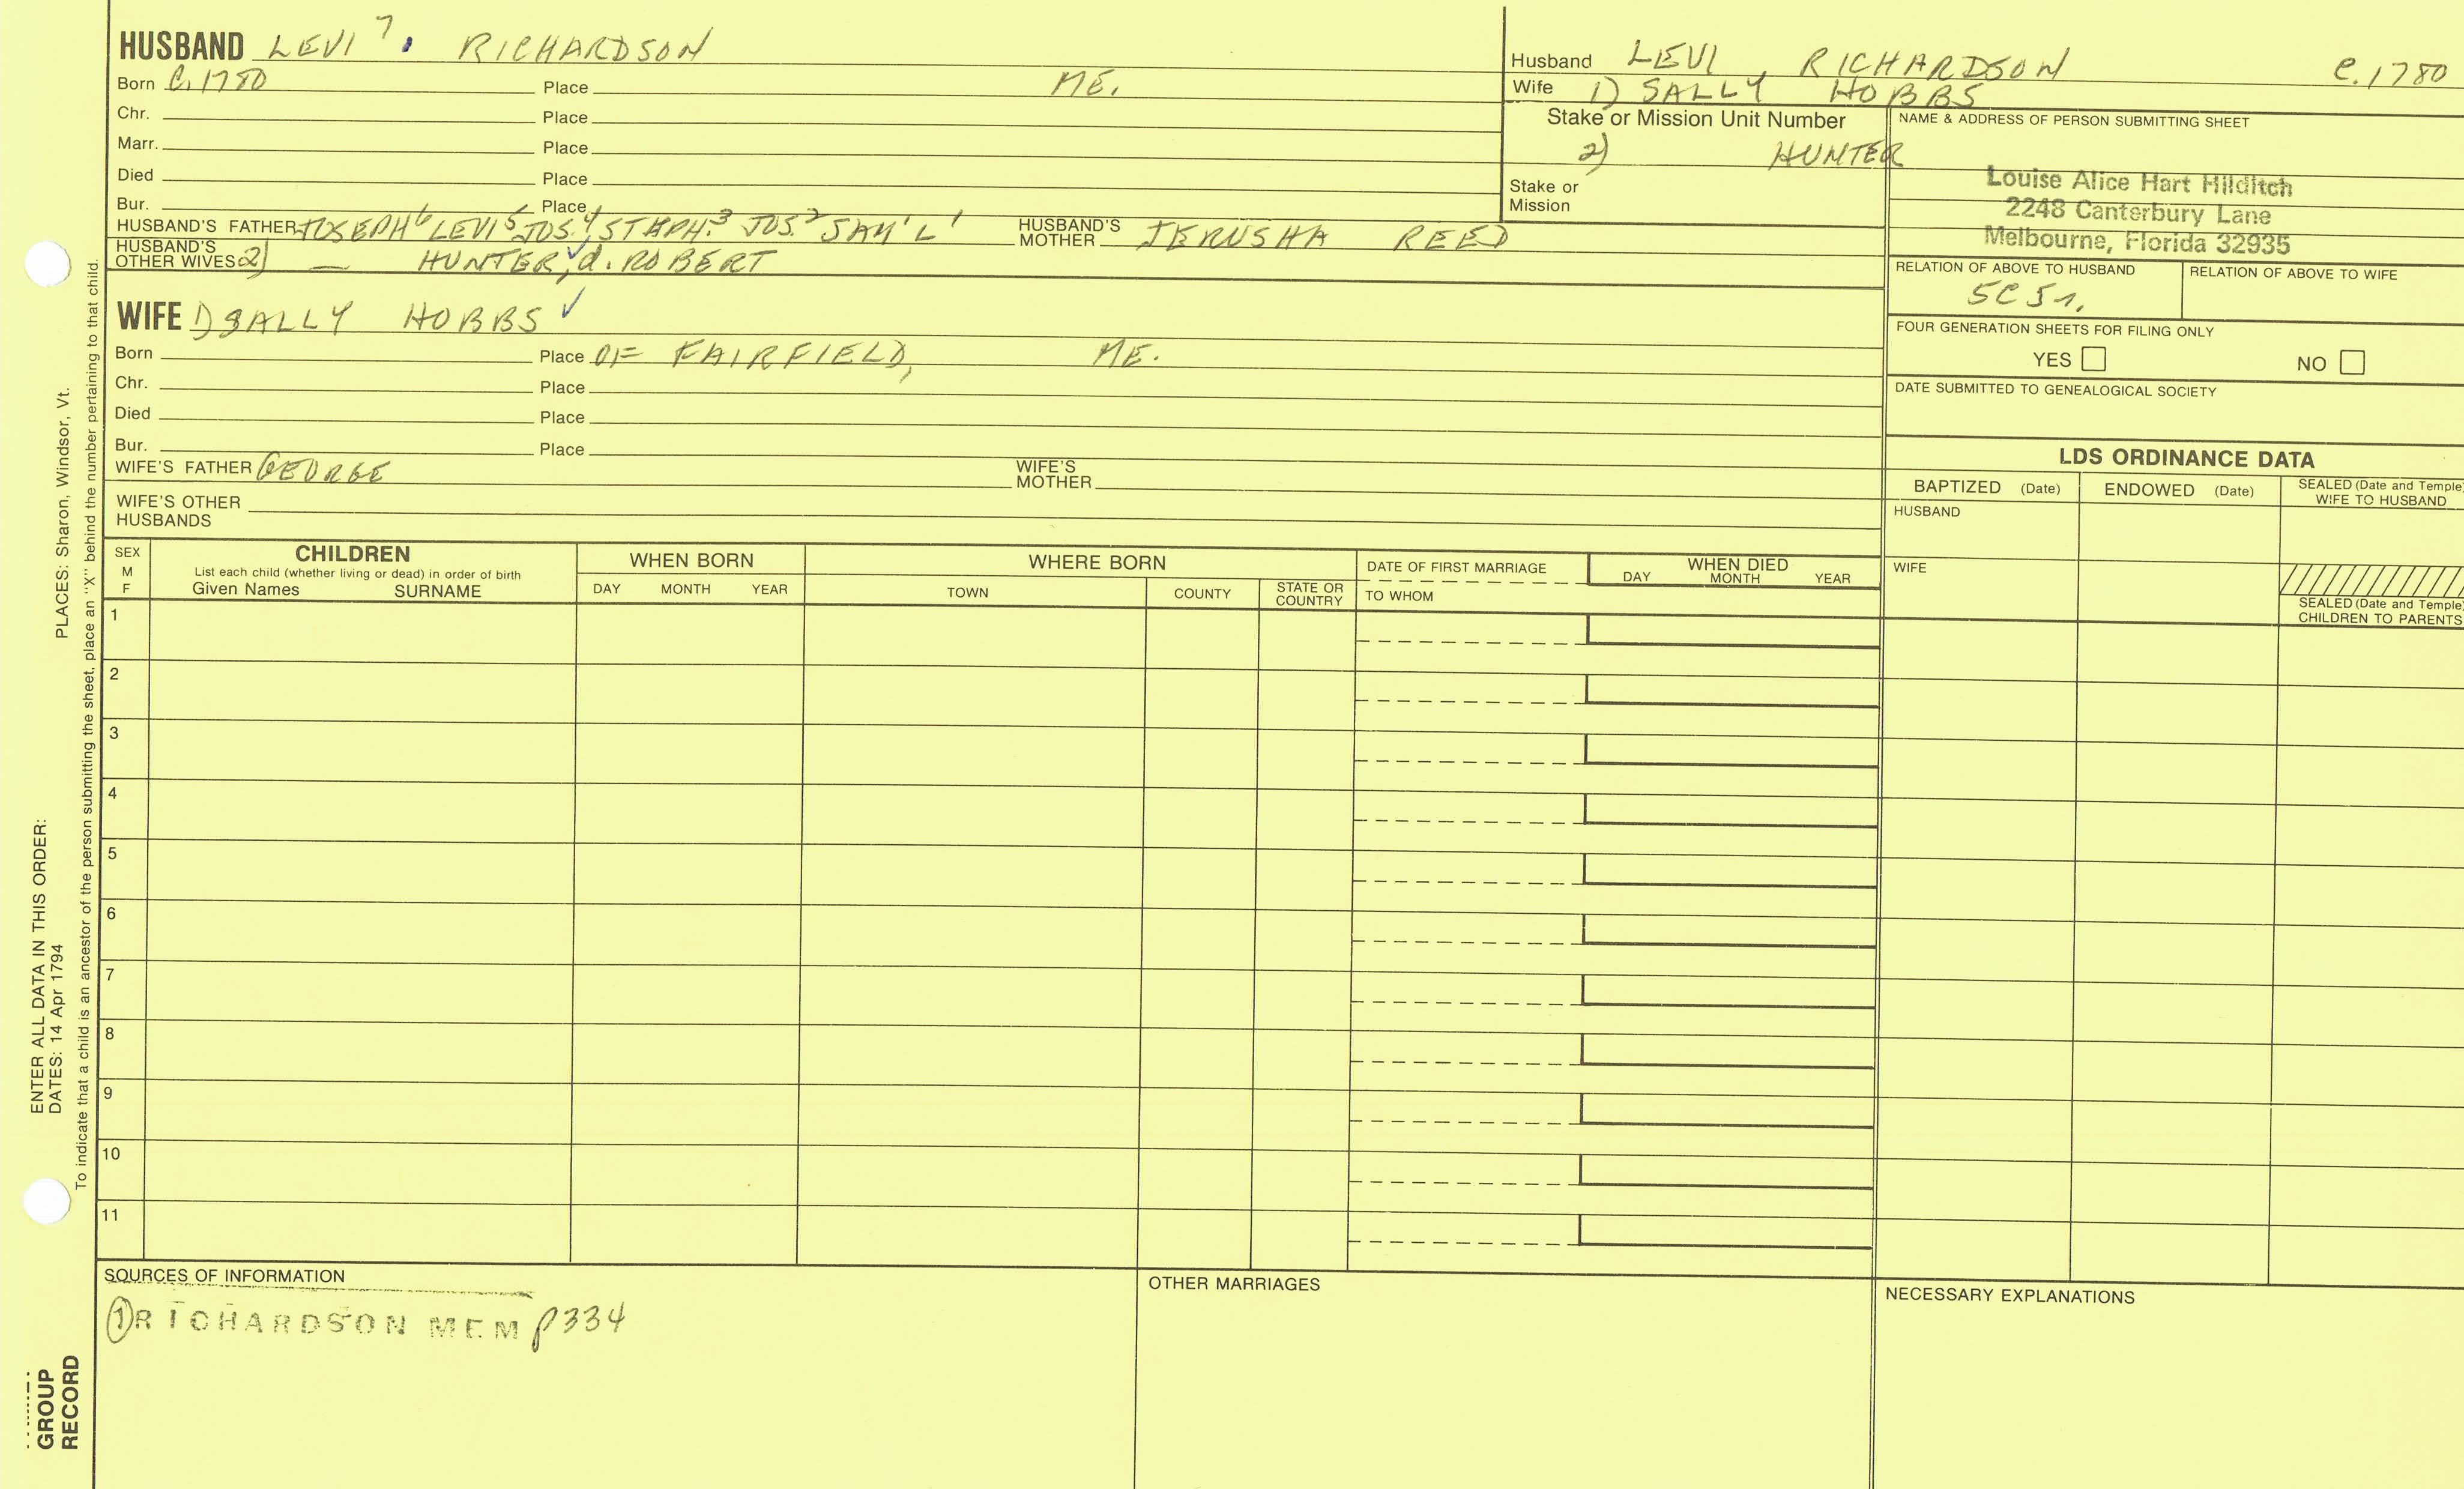 HUSBAND LEVI 7. RICHARDSON
Born C. 1780 Place ME.
Chr. Place
Marr. Place
Died Place
Bur. Place
HUSBAND'S FATHER JOSEPH6 LEVI5 JOS.4 STEPH.3 JOS.2 SAM'L1 HUSBAND'S MOTHER JERUSHA REED
HUSBAND'S OTHER WIVES 2) — HUNTER, d. ROBERT
WIFE 1) SALLY HOBBS ✓
Born Place OF FAIRFIELD, ME.
Chr. Place
Died Place
Bur. Place
WIFE'S FATHER GEORGE WIFE'S MOTHER
WIFE'S OTHER HUSBANDS
Husband LEVI, RICHARDSON C. 1780
Wife 1) SALLY HOBBS
Stake or Mission Unit Number
2) HUNTER
Stake or Mission
NAME & ADDRESS OF PERSON SUBMITTING SHEET
Louise Alice Hart Hilditch
2248 Canterbury Lane
Melbourne, Florida 32935
RELATION OF ABOVE TO HUSBAND RELATION OF ABOVE TO WIFE
FOUR GENERATION SHEETS FOR FILING ONLY
YES NO
DATE SUBMITTED TO GENEALOGICAL SOCIETY
LDS ORDINANCE DATA
BAPTIZED (Date) ENDOWED (Date) SEALED (Date and Temple) WIFE TO HUSBAND
HUSBAND
WIFE
SEALED (Date and Temple) CHILDREN TO PARENTS
SEX M F
CHILDREN
List each child (whether living or dead) in order of birth
Given Names SURNAME
WHEN BORN
DAY MONTH YEAR
WHERE BORN
TOWN COUNTY STATE OR COUNTRY
DATE OF FIRST MARRIAGE
TO WHOM
WHEN DIED
DAY MONTH YEAR
1
2
3
4
5
6
7
8
9
10
11
SOURCES OF INFORMATION
1 RICHARDSON MEM p334
OTHER MARRIAGES
NECESSARY EXPLANATIONS
ENTER ALL DATA IN THIS ORDER:
DATES: 14 Apr 1794 PLACES: Sharon, Windsor, Vt.
To indicate that a child is an ancestor of the person submitting the sheet, place an "X" behind the number pertaining to that child.
GROUP
RECORD